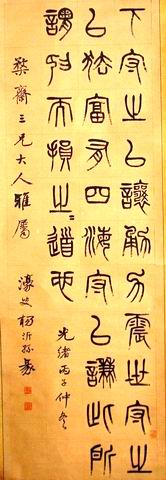 下守之㠯讓勇力震世守之
㠯怯富有四海守㠯謙此所
謂挹而損之〻道也
光緒丙子仲冬
齋三兄大人雅屬
濠叟楊沂孫篆